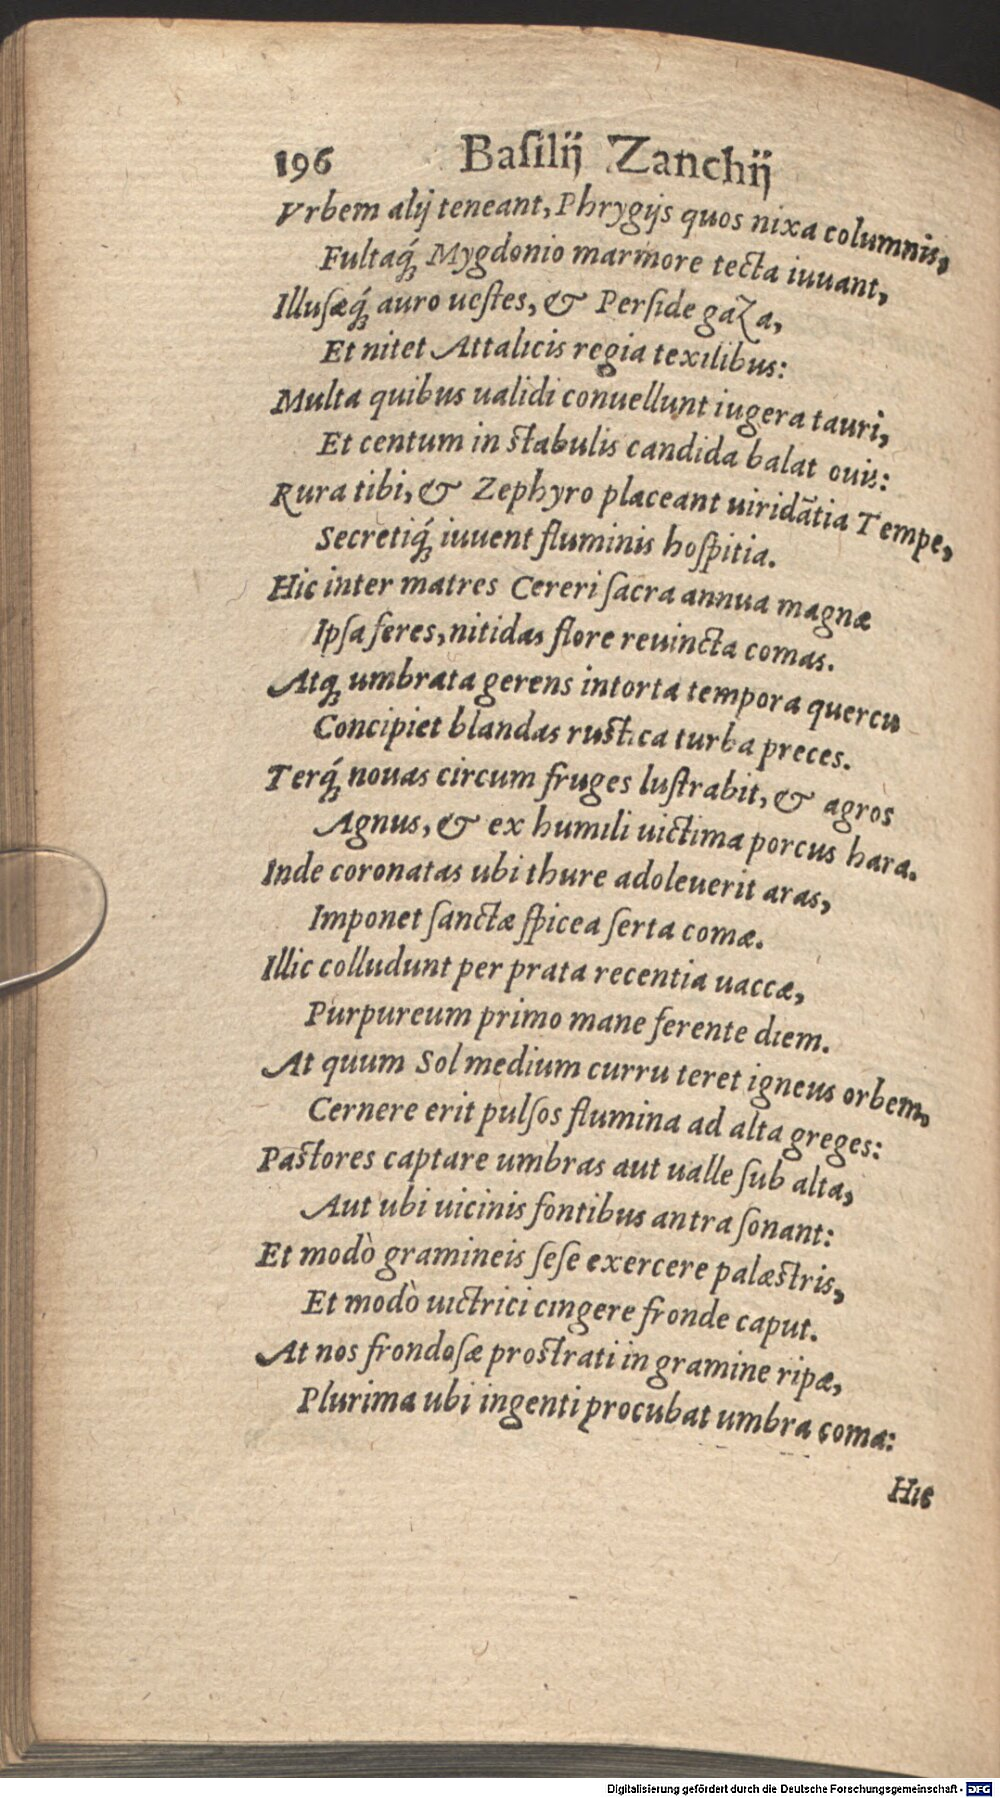 196 Baſilij Zanchij
Vrbem alij teneant, Phrygijs quos nixa columnis,
Fultaq́; Mygdonio marmore tecta iuuant,
Illuſæq́; auro ueſtes, & Perſide gaza,
Et nitet Attalicis regia texilibus:
Multa quibus ualidi conuellunt iugera tauri,
Et centum in ſtabulis candida balat ouis:
Rura tibi, & Zephyro placeant uiridātia Tempe,
Secretiq́; iuuent fluminis hoſpitia.
Hic inter matres Cereri ſacra annua magnæ
Ipſa feres, nitidas flore reuincta comas.
Atq; umbrata gerens intorta tempora quercu
Concipiet blandas ruſtica turba preces.
Terq́; nouas circum fruges luſtrabit, & agros
Agnus, & ex humili uictima porcus hara.
Inde coronatas ubi thure adoleuerit aras,
Imponet ſanctæ ſpicea ſerta comæ.
Illic colludunt per prata recentia uaccæ,
Purpureum primo mane ferente diem.
At quum Sol medium curru teret igneus orbem,
Cernere erit pulſos flumina ad alta greges:
Paſtores captare umbras aut ualle ſub alta,
Aut ubi uicinis fontibus antra ſonant:
Et modò gramineis ſeſe exercere palæſtris,
Et modò uictrici cingere fronde caput.
At nos frondoſæ proſtrati in gramine ripæ,
Plurima ubi ingenti procubat umbra coma:
Hic
Digitalisierung gefördert durch die Deutsche Forschungsgemeinschaft - DFG